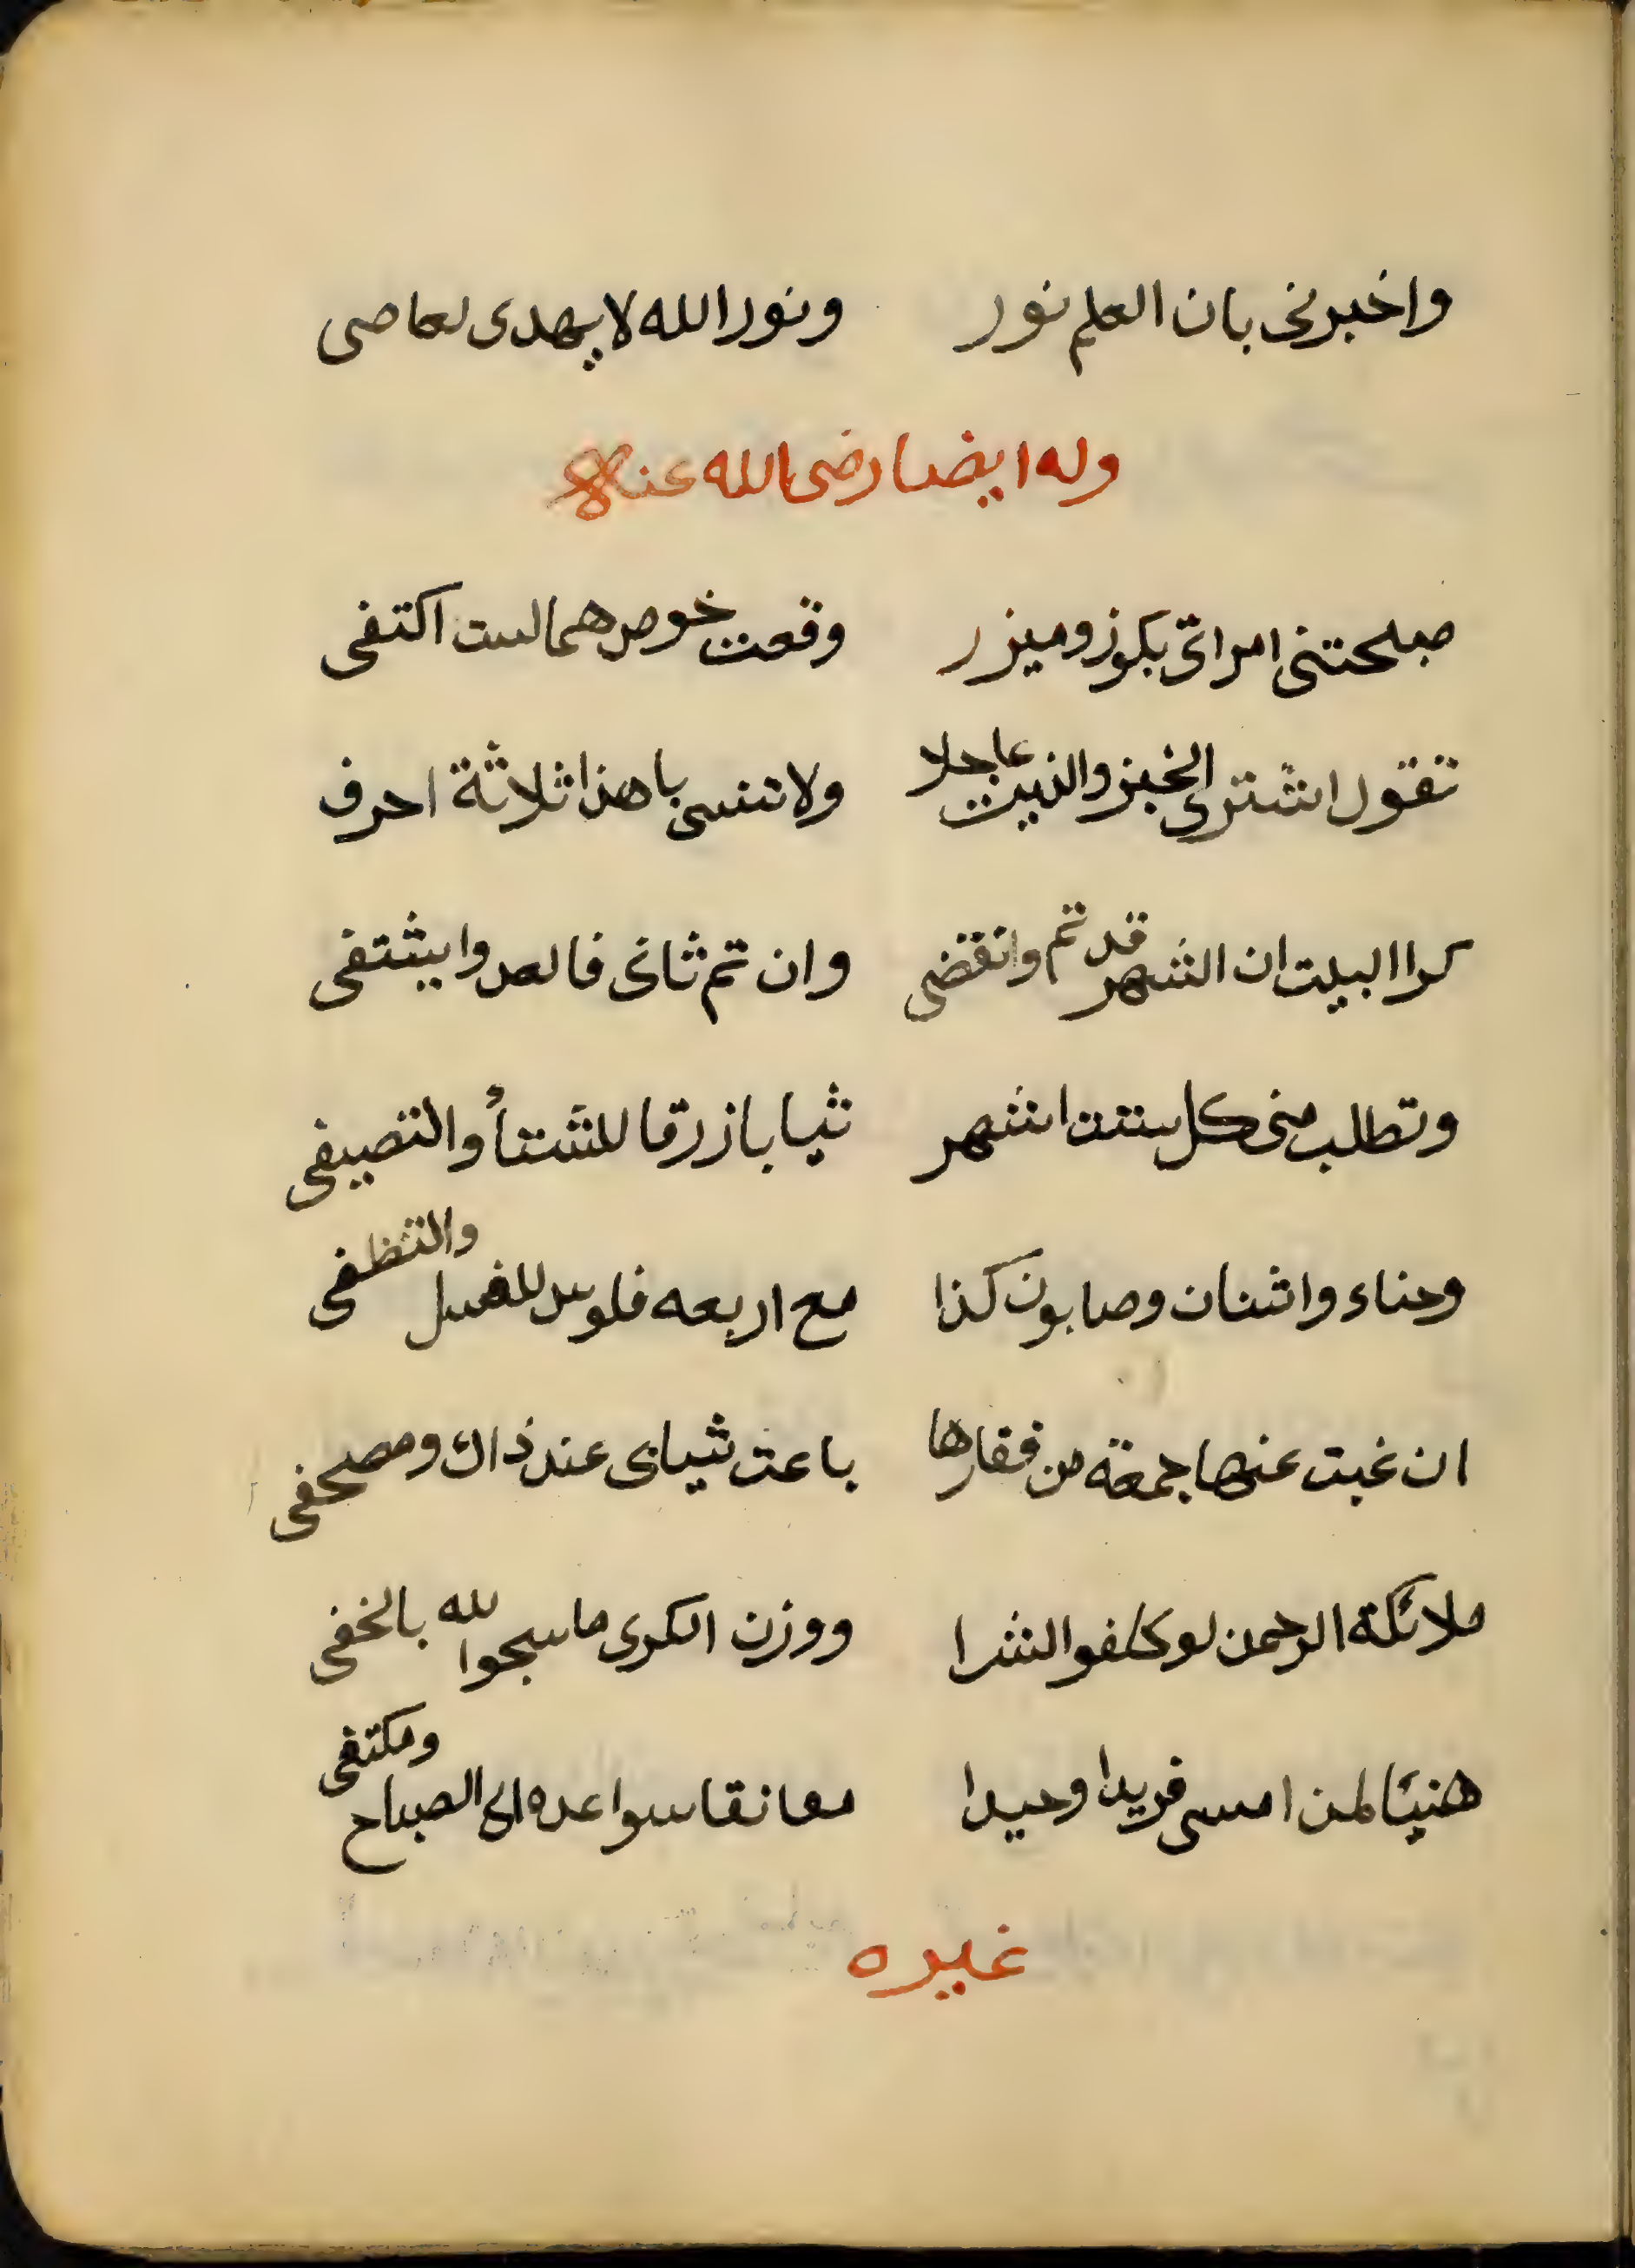 واخبرنى بان العلم نور ونور الله لا يهدى لعاصى
وله ايضا رضى الله عنه
صبحتنى امراتى بكوز وميزر وقعت خوص هما لست اكتفى
تقول اشترى الخبز والزيت عاجلا ولا تنسى يا هذا ثلاثة احرف
كرا البيت ان الشهر قد تم وانقضى وان تم ثانى فالصوا يشتفى
وتطلب منى كل ستت اشهر ثيابا زرقا للشتأ والتصيفى
وحناء واثنان وصابون كذا مع اربعه فلوس للغسل والتنظفى
ان غبت عنها جمعة من فقارها باعت ثيابى عند ذاك ومصحفى
ملائكة الرحمن لو كلفوا الشرا ووزن الكرى ما سبحوا لله بالخفى
هنيئا لمن امسى فريدا وحيدا معانقا سواعده الى الصباح ومكتفى
غيره